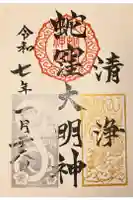 清浄
蛇窪大明神
令和七年一月